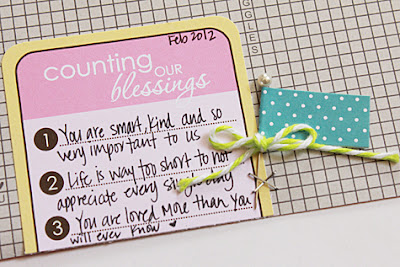 GGLES
Feb 2012
counting
OUR
blessings
1 You are smart, kind and so
very important to us
2 Life is way too short to not
appreciate every single day
3 You are loved more than you
will ever know